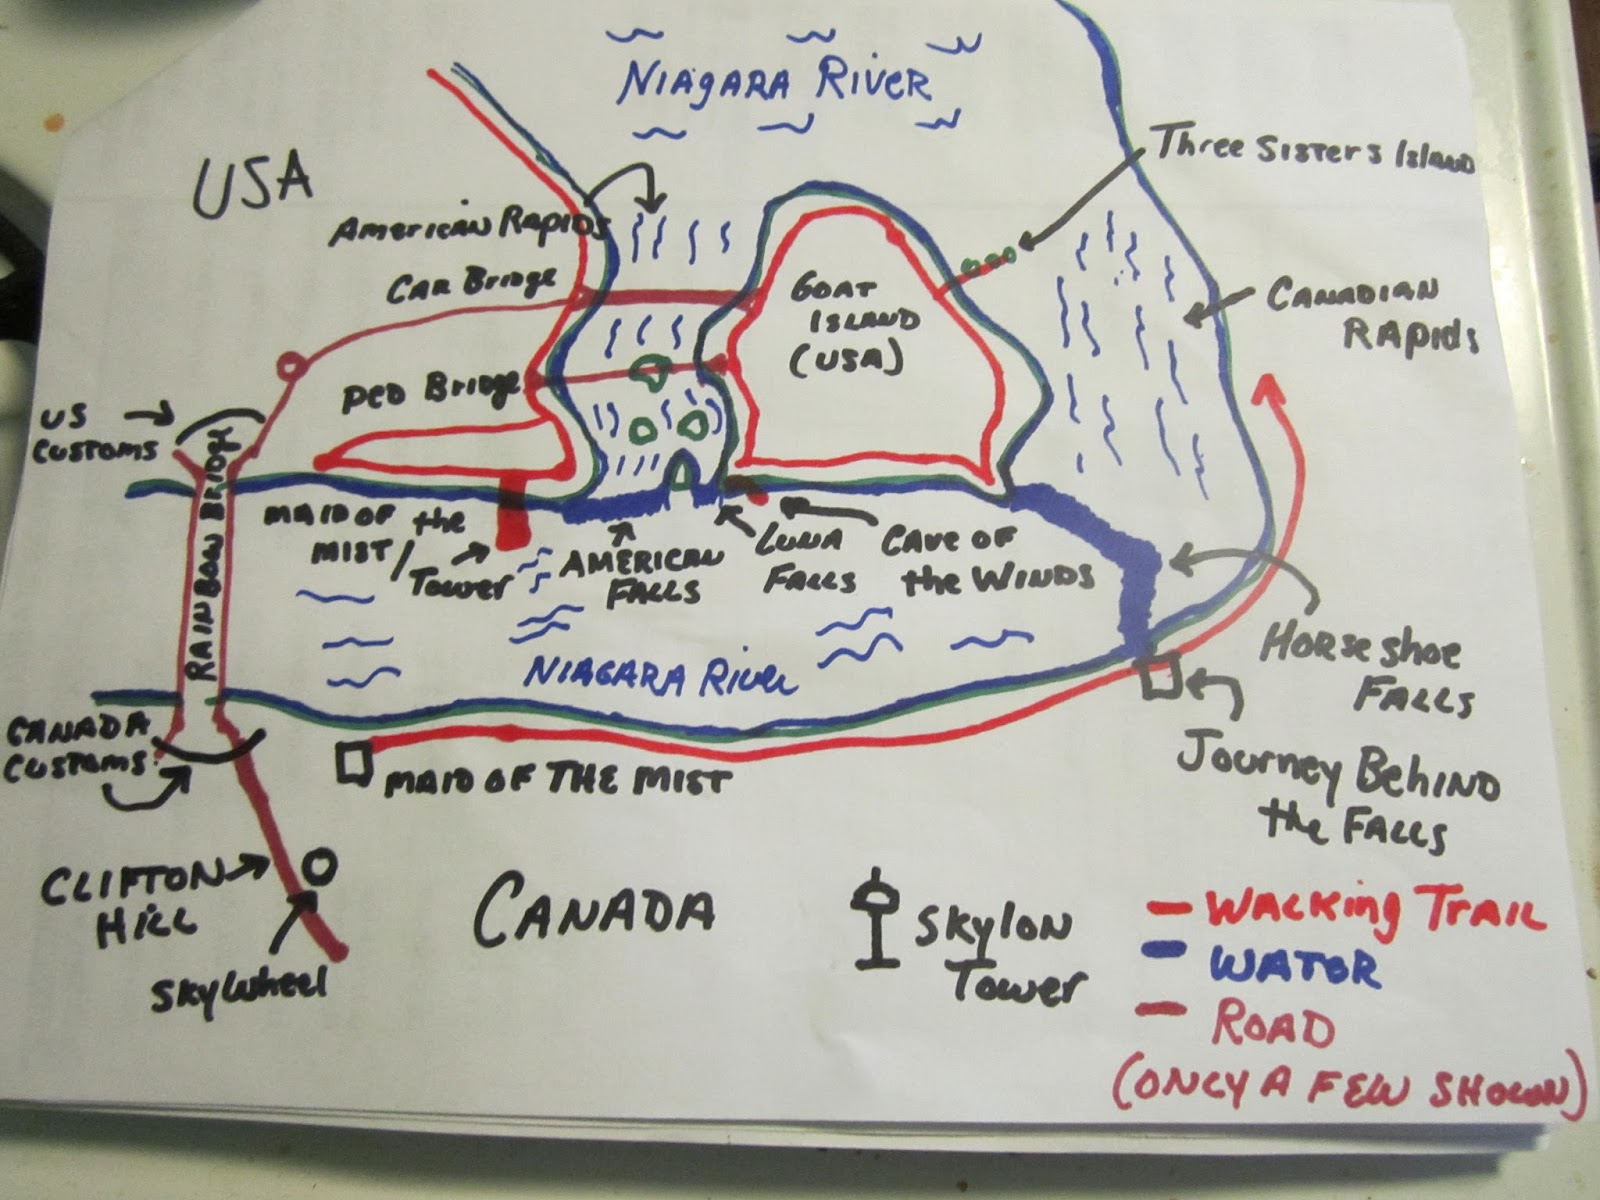 NIAGARA RIVER
USA
Three Sisters Island
American Rapids
CAR Bridge
GOAT
ISLAND
(USA)
CANADIAN
RAPids
PED Bridge
US
CUSTOMS
RAINBOW BRIDGE
MAID OF
MIST/
the
Tower
AMERICAN
FALLS
LUNA
FALLS
CAVE OF
the WINDS
NIAGARA RIVER
HORSEshoe
FALLS
CANADA
CUSTOMS
MAID OF THE MIST
Journey Behind
the FALLS
CLIFTON
HILL
SkyWheel
CANADA
SKYLON
Tower
WALKing TRAIL
WATER
ROAD
(ONLY A FEW SHOWN)